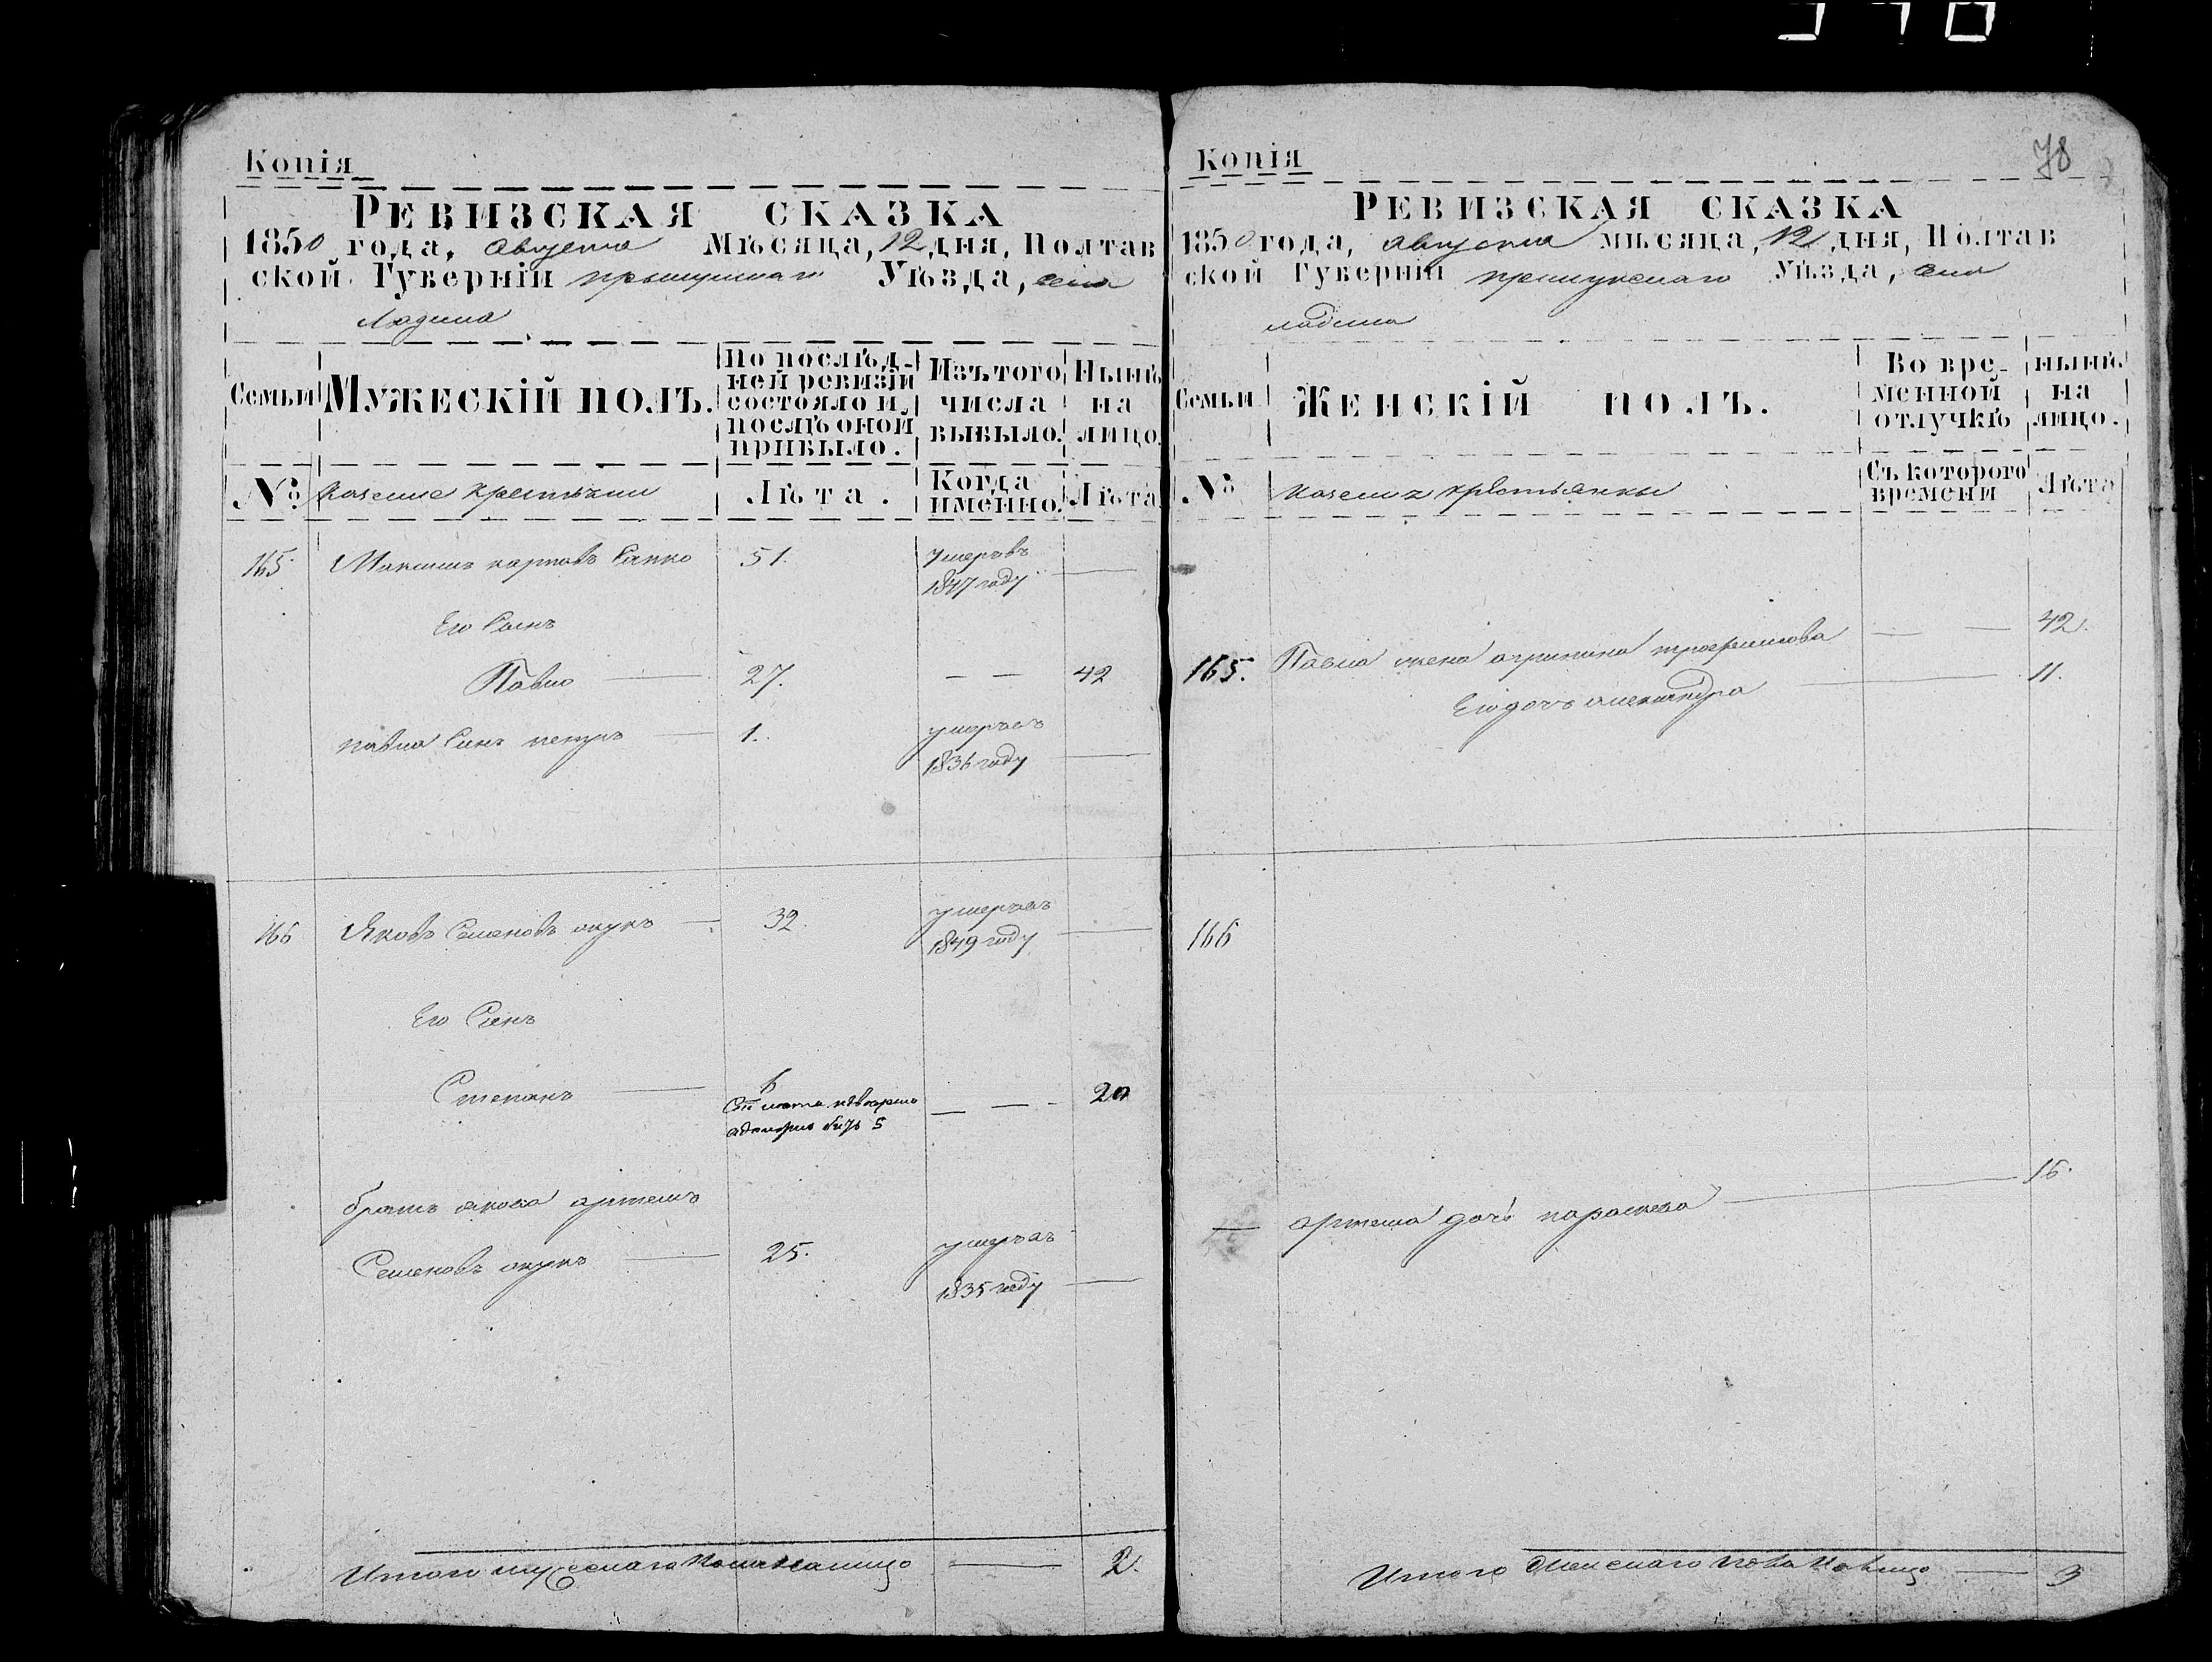 Копія
РЕВИЗСКАЯ СКАЗКА
1850 года, августа Мѣсяца, 12 дня, Полтав
ской Губерніи прылуцкаго Уѣзда, села
Ладина
Семьи
Мужескій полъ.
По послѣд-
ней ревизіи
состояло и
послѣ оной
прибыло.
Изъ того
числа
выбыло.
Нынѣ
на
лицо.
№
казенные крестьяни
Лѣта.
Когда
именно.
Лѣта
165. Максимъ карповъ Сапко 51. умеръ въ
1847 году
Его Сынъ
Павло 27. 42
павла Синъ петръ 1. умеръ въ
1836 году
166 Яковъ Семеновъ окунъ 32. умеръ въ
1849 году
Его Синъ
Степанъ 6 20
5
братъ якова артемъ
Семеновъ окунъ 25. умеръ въ
1835 году
Итого мужескаго пола налицо 2.
Копія
78
РЕВИЗСКАЯ СКАЗКА
1850 года, августа мѣсяца, 12 дня, Полтав
ской Губерніи прилуцкаго Уѣзда, села
ладина
Семьи
Женскій полъ.
Во вре-
менной
отлучкѣ
нынѣ
на
лицо.
№
крестьянки
Съ котораго
времени
Лѣта
165. Павла жена агрипина трофимова 42.
Его дочь александра 11.
166
артема дочь параскева 16.
Итого Женскаго пола налицо 3